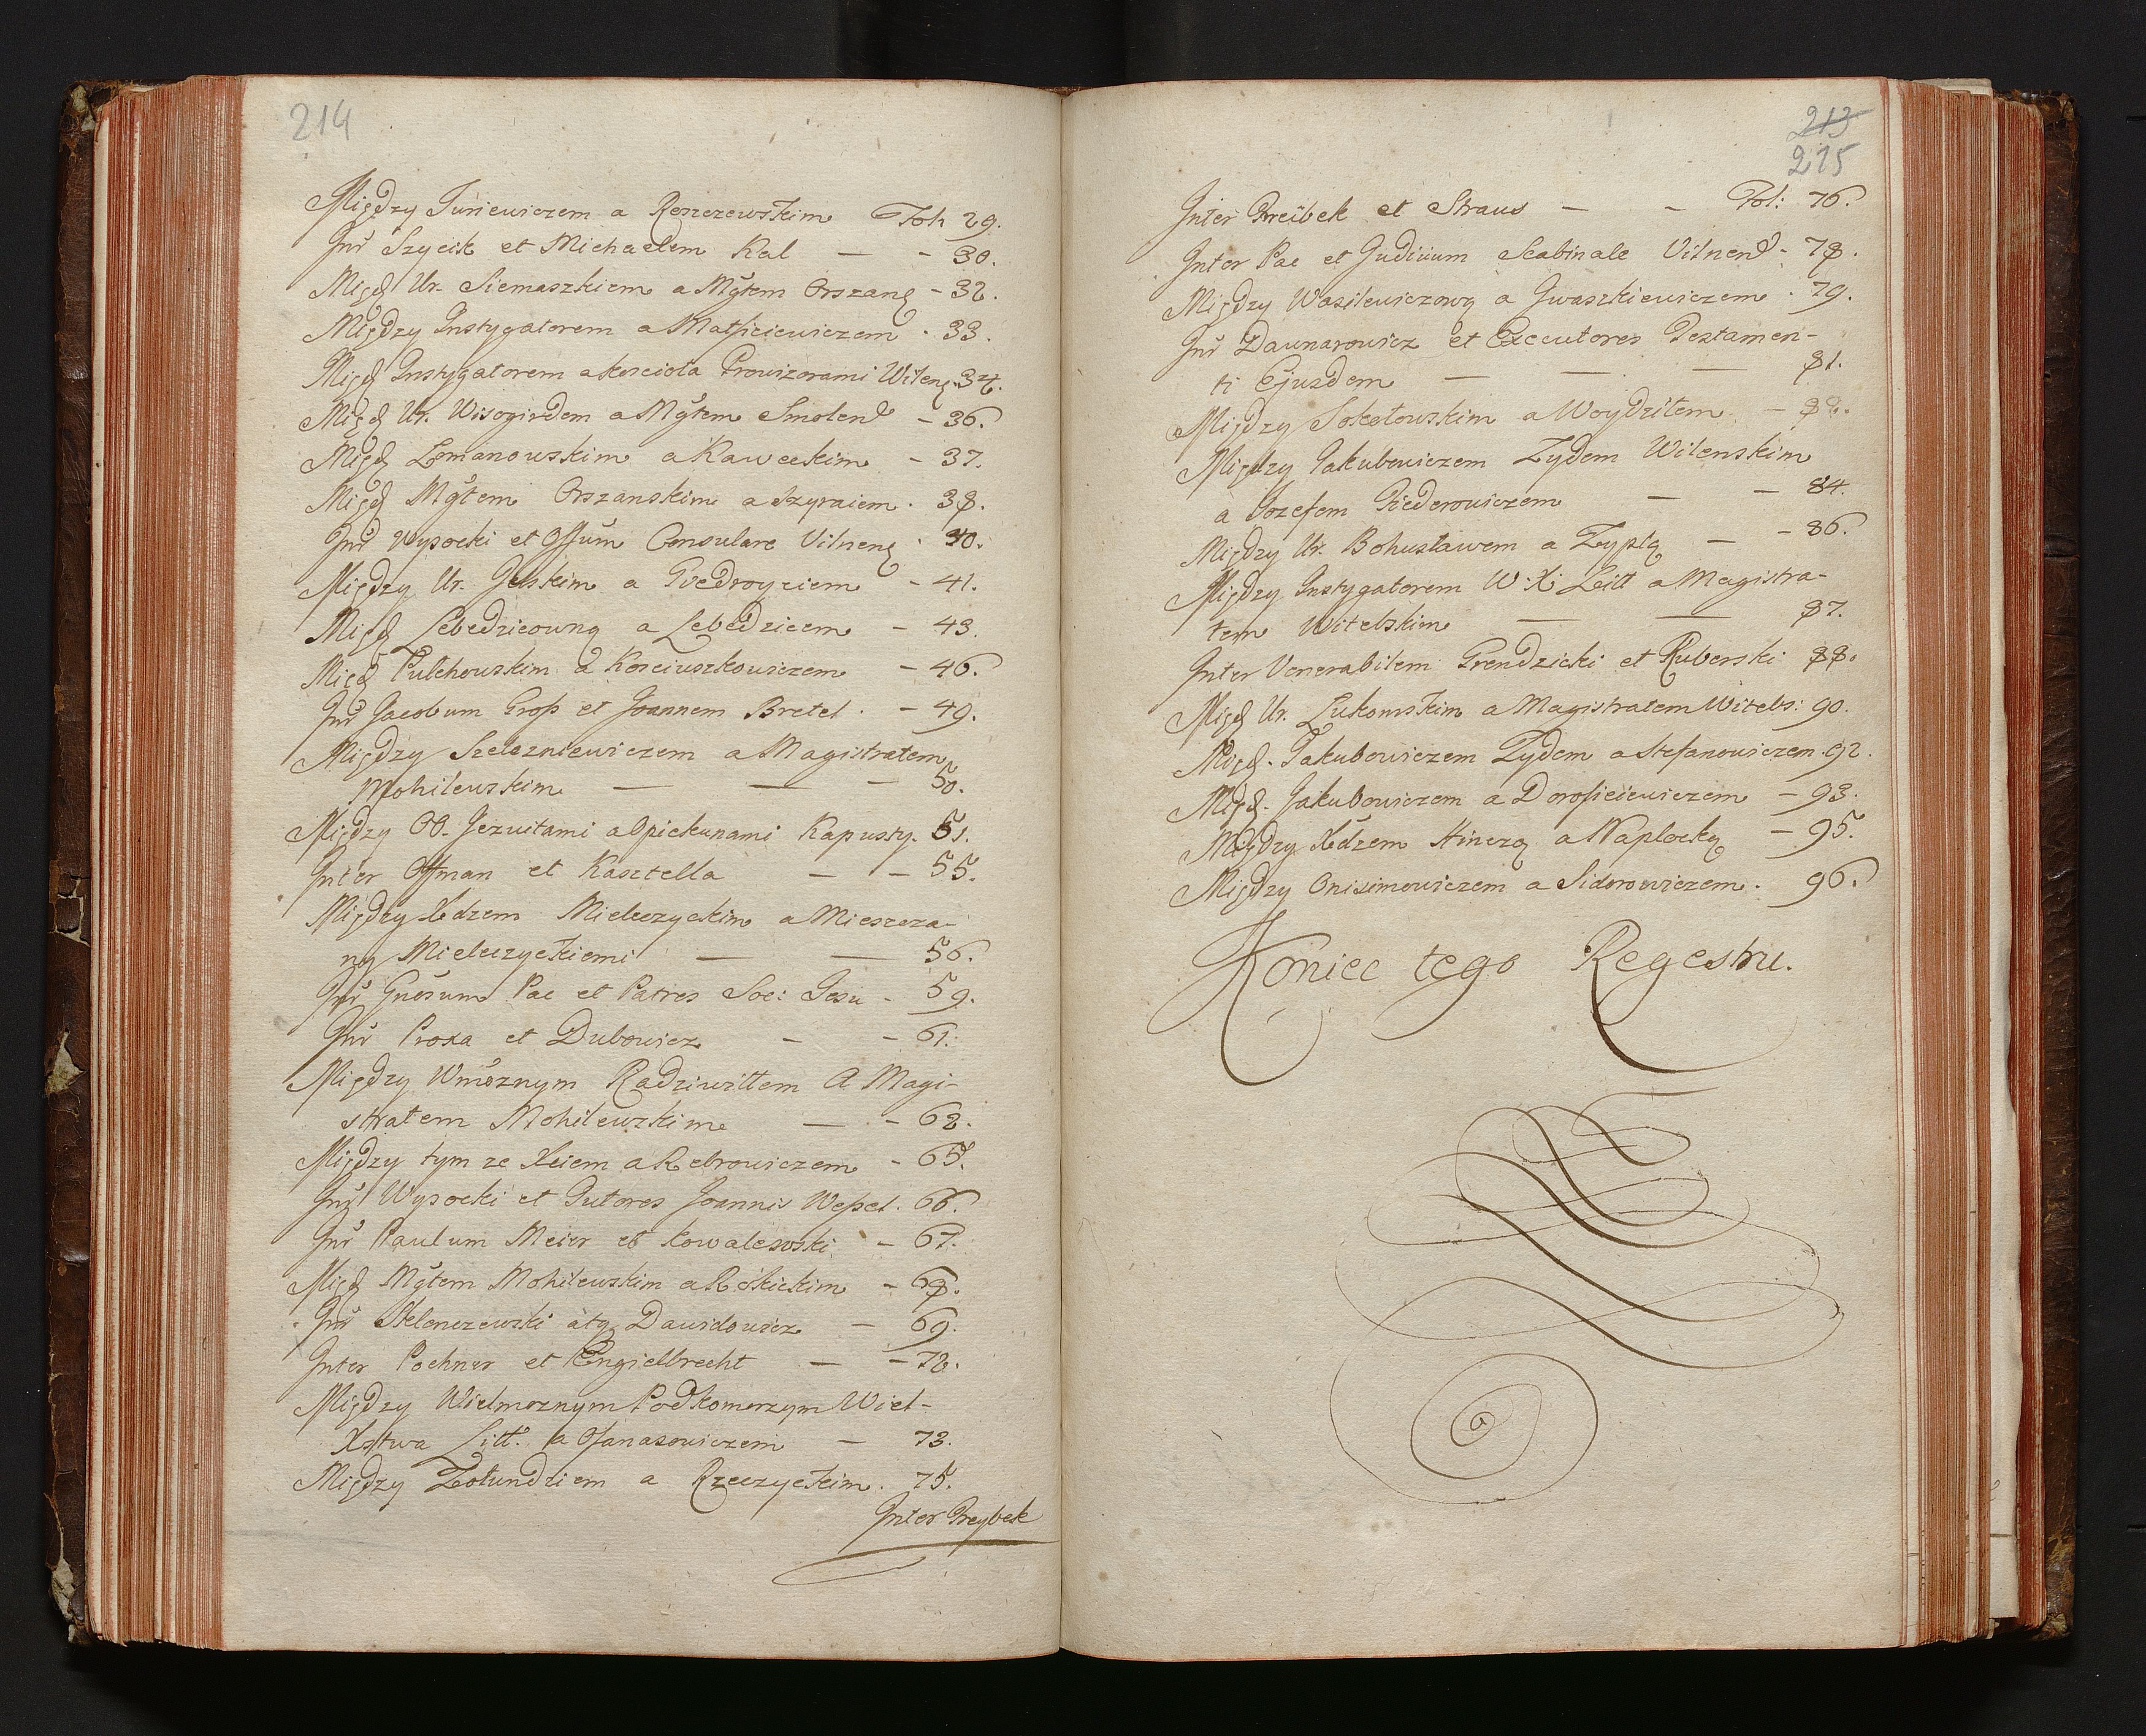 214
Między Juriewiczem a Reszczewskim Fol: 29.
Inr Szycik et Michaelem Kal — - 30.
Międ Ur. Siemaszkiem a Mgtem Orszang - 32.
Między Instygatorem a Matfieiewiczem - 33.
Międ Instygatorem a kosciola Prowizorami Wileng. 34.
Międ Ur. Wisogirdem a Mgtem Smolend - 36.
Międ Lomanowskim a Kaweckim - 37.
Międ Mgtem Orszanskim a Szyraiem. 38.
Inr Wysocki et Offum Consulare Vilneng. 40.
Między Ur. Jelskim a Giedroyciem - 41.
Międ Lebedzicowną a Lebedzicem - 43.
Międ Pulchowskim a Kosciuszkowiczem - 46.
Inr Jacobum Grofs et Joannem Bretel. - 49.
Między Szelezniewiczem a Magistratem
Mohilewskim — — - 50.
Między OO. Jezuitami a Opiekunami Kapusty. 51.
Inter Offman et Kasztella — - 55.
Między Xdzem Mieleczyckim a Mieszcza-
ny Mieleczyckiemi — — 56.
Inr Gnosum Pac et Patres Soc: Jesu - 59.
Inr Proxa et Dubowicz - - 61.
Między Wmoznym Radziwiłłem A Magi-
stratem Mohilewskim — - 62.
Między tym ze Xciem a Rebrowiczem - 65.
Inr Wysocki et Tutores Joannis Wefsel. 66.
Inr Paulum Meier et Kowalewski - 67.
Międ Mgtem Mohilewskim a Rokickim - 68.
Inr Sklenczewski atq Dawidowicz — 69.
Inter Pochner et Engielbrecht — - 72.
Między Wielmoznym Podkomorzym Wiel-
Xstwa Litt. a Ofanasowiczem — 73.
Między Zołundziem a Rzeczyckim. 75.
Inter Preybek
213
215
Inter Preibek et Straus — - Fol: 76.
Inter Pac et Judicium Scabinale Vilnend - 78.
Między Wasilewiczową a Jwaszkiewiczem. 79.
Inr Daunarowicz et Executores Testamen-
ti Ejusdem — — — 81.
Między Sokołowskim a Woydziłem - 82.
Między Jakubowiczem Zydem Wilenskim
a Jozefem Fiederowiczem — - 84.
Między Ur. Bohusławem a Zyplą — - 86.
Między Instygatorem W. X. Litt a Magistra-
tem Witebskim — — 87.
Inter Venerabilem Grendzicki et Ruberski 88.
Międ Ur. Łukomskim a Magistratem Witebs: 90.
Międ. Jakubowiczem Zydem a Stefanowiczem. 92.
Międ. Jakubowiczem a Dorofieiewiczem - 93.
Między Xdzem Hinczą a Naplocką - 95.
Między Onisimowiczem a Sidorowiczem. 96.
Koniec tego Regestru.